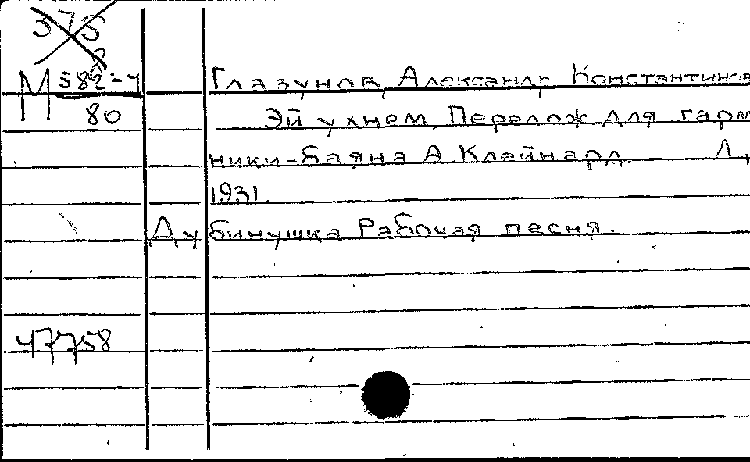 375
М 582-4
80
Глазунов, Александр Константинов
Эй ухнем. Перелож. для гарм
ники-баяна А. Клейнард. Л.,
1931.
Дубинушка. Рабочая песня.
47758